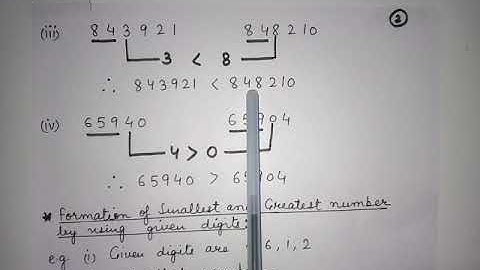 (iii) 843921 848210 2
3 < 8
∴ 843921 < 848210
(iv) 65940 65904
4 > 0
∴ 65940 > 65904
* Formation of Smallest and Greatest number
by using given digits:
e.g (i) Given digits are 6, 1, 2